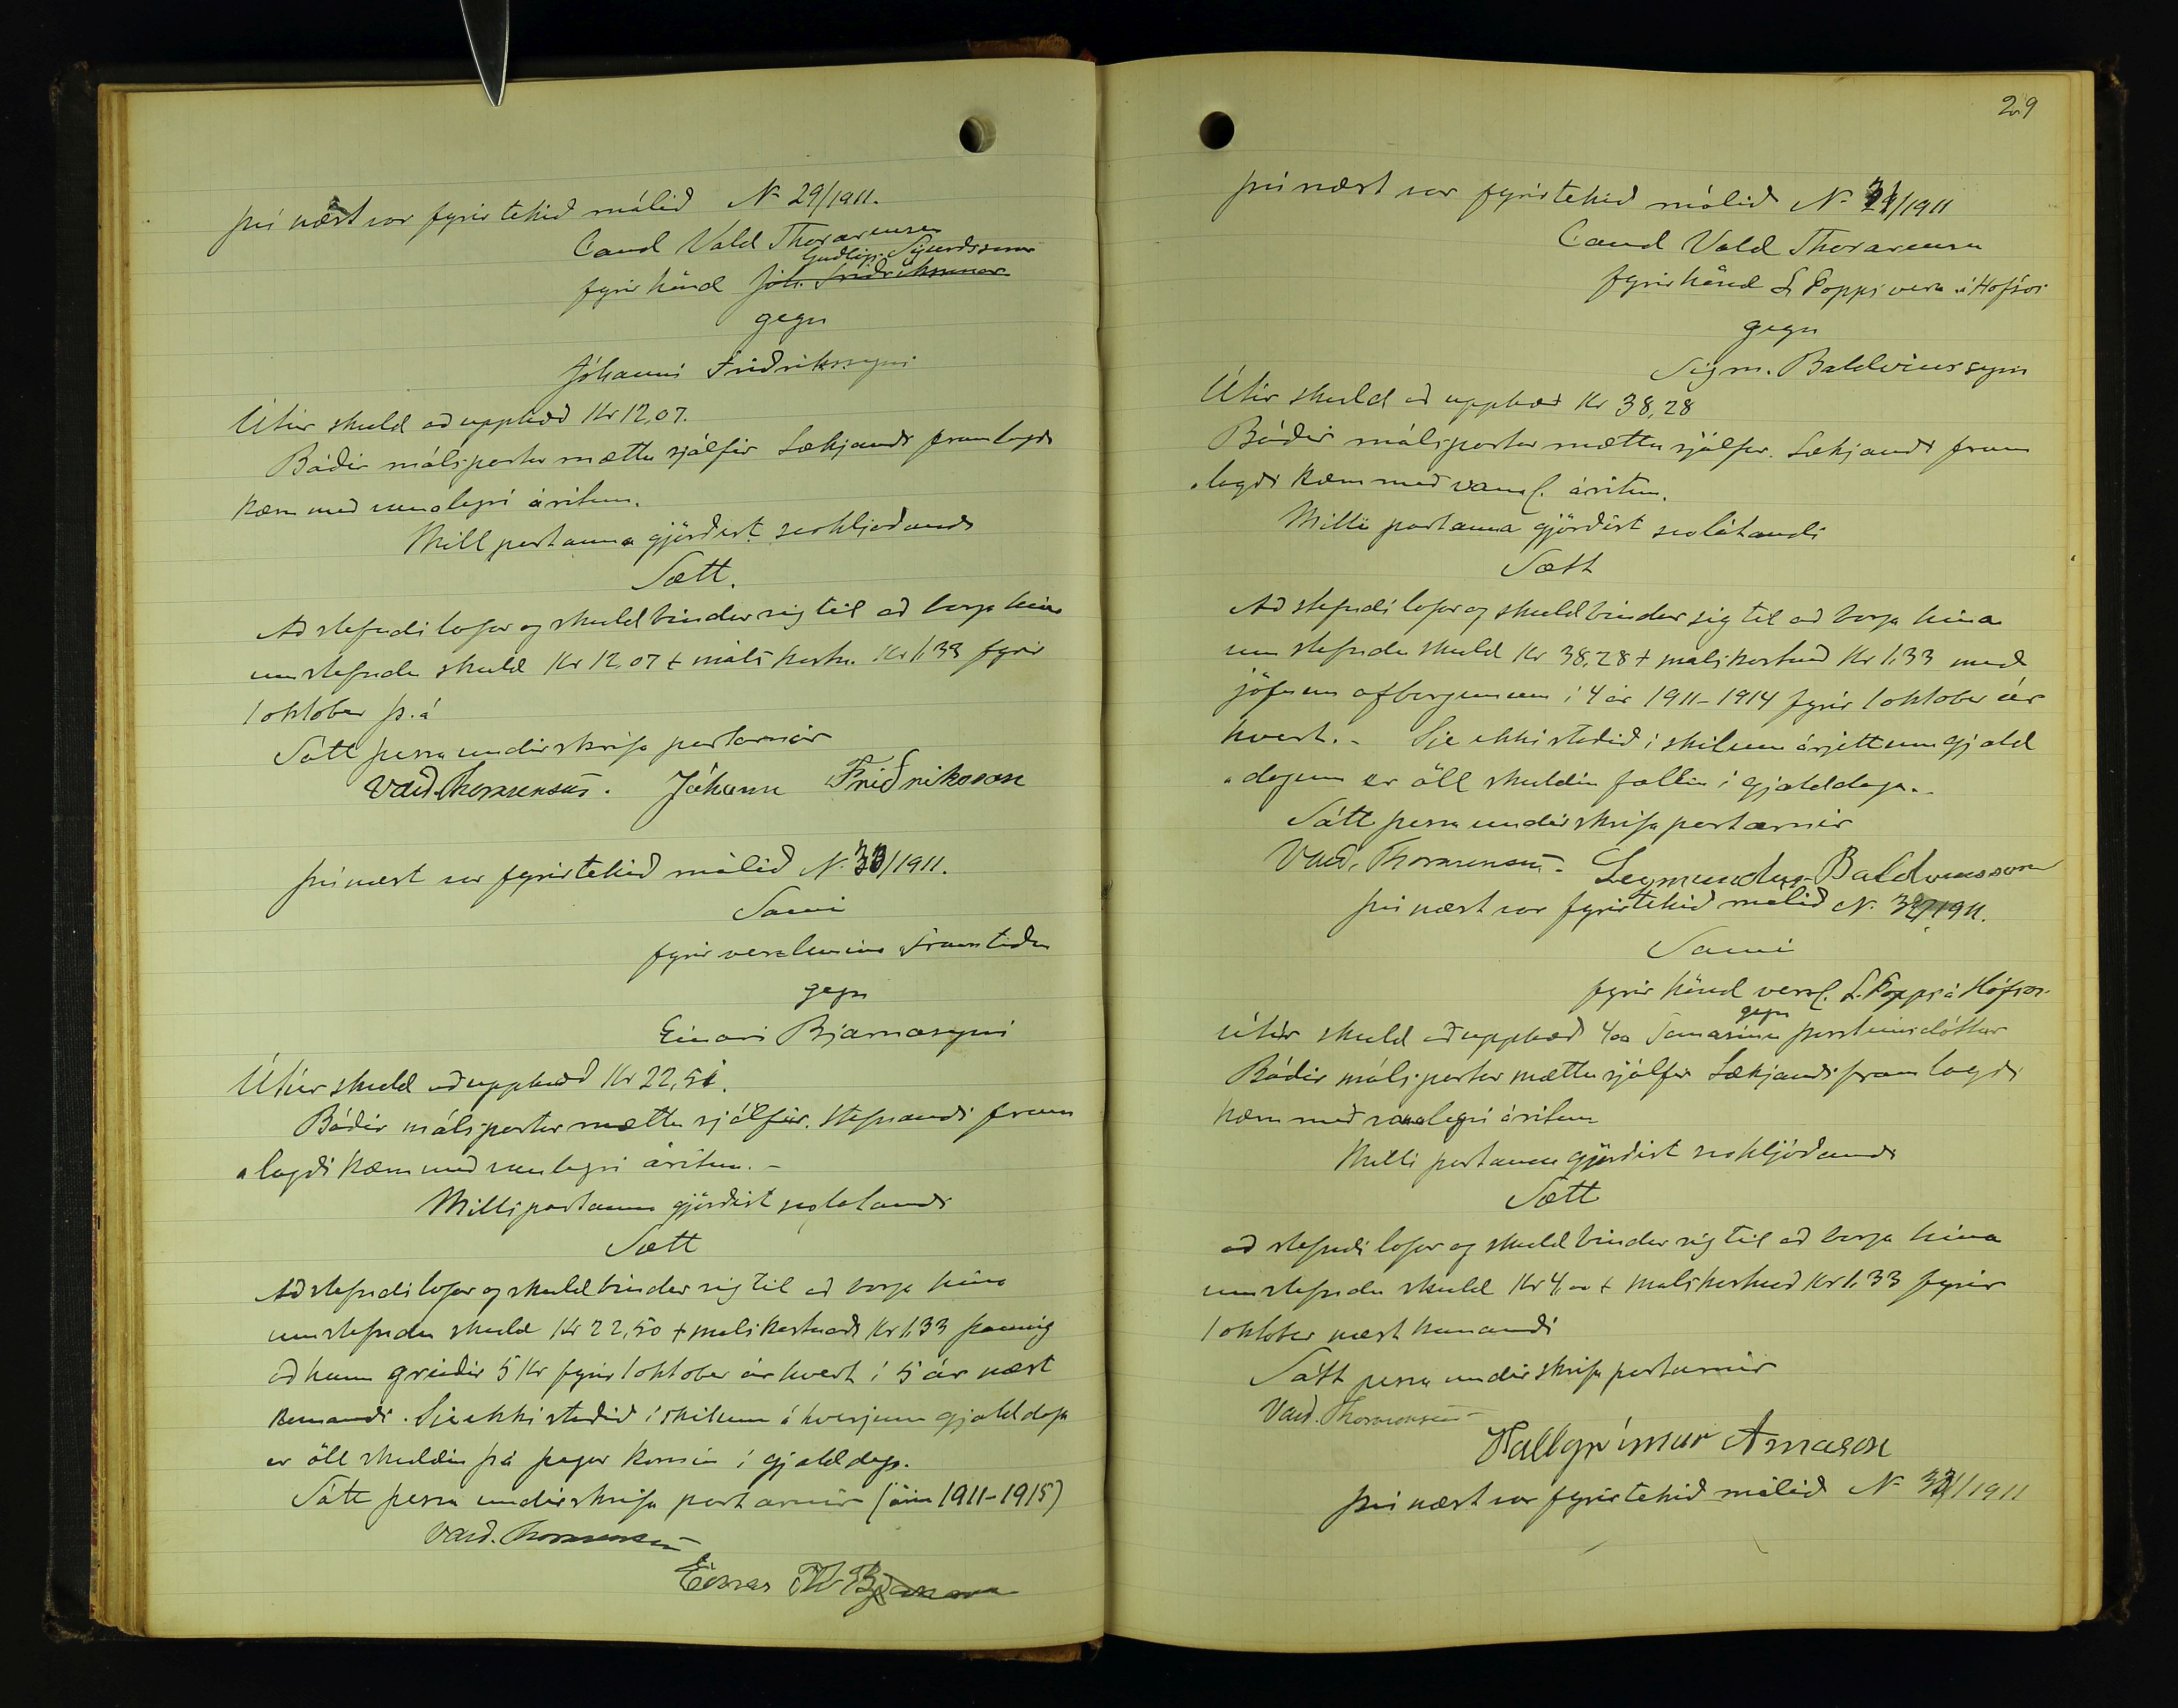 því næst var fyrir tekið málið No 29/1911.
Cand Vald Thorarensen
Guðlög. Sigurdssonar
fyrir hönd Jóh. Friðrikssonar
gegn
Jóhanni Friðrikssyni
Útúr skuld að upphæð Kr 12,07.
Báðir málspartar mættu sjálfir Sækjandi framlagði
kæru með vanalegri áritun.
Mill partanna gjörðist svohljóðandi
Sætt.
Að stefndi lofar og skuldbindur sig til að borga hina
umstefndu skuld Kr 12,07 + málskostn. Kr 1,33 fyrir
1 oktober þ.á
Sátt þessa undirskrifa partarnir
Vald. Thorarensen. Jóhann Friðriksson
því næst var fyrirtekið málið No 30/1911.
Sami
fyrir verslunina Framtíðin
gegn
Einari Bjarnasyni
Útúr skuld að upphæð Kr 22,50.
Báðir málspartar mættu sjálfir. Stefnandi fram
"lagði kæru með vanlegri áritun. -
Milli partanna gjörðist svolatandi
Sætt
Að stefndi lofar og skuldbindur sig til að borga hina
umstefndu skuld Kr 22,50 + málskostnað Kr 1,33 þannig
að hann greiðir 5 Kr fyrir 1 oktober ár hvert í 5 ár næst
komandi. Sje ekki staðið í skilum á hverjum gjalddaga
er öll skuldin þá þegar komin í gjalddaga.
Sátt þessa undirskrifa partarnir (árin 1911-1915)
Vald. Thorarensen
Einar Bjarnason
29
því næst var fyrirtekið málið No 31/1911
Cand Vald Thorarensen
fyrir hönd L Popps versl á Hofsós
gegn
Sigm. Baldvinssyni
Útúr skuld að upphæð Kr 38,28
Báðir málspartar mættu sjálfir. Sækjandi fram
"lagði kæru með vanal. áritun.
Milli partanna gjörðist svolátandi
Sætt
Að stefndi lofar og skuldbindur sig til að borga hina
um stefndu skuld Kr 38,28 + málskostnað Kr 1,33 með
jöfnum afborgunum í 4 ár 1911-1914 fyrir 1 oktober ár
hvert. - Sje ekki staðið í skilum á rjettum gjald
"dögum er öll skuldin fallin í gjalddaga. -
Sátt þessa undirskrifa partarnir
Vald. Thorarensen - Segmundur Baldvinsson
því næst var fyrirtekið málið No 32/1911.
Sami
fyrir hönd versl. L. Popps á Hofsós.
gegn
útúr skuld að upphæð 4oo Tomasínu Þorsteinsdóttur
Báðir málspartar mættu sjálfir Sækjandi framlagði
kæru með vanalegri áritun
Milli partanna gjörðist svohljóðandi
Sætt
að stefndi lofar og skuldbindur sig til að borga hina
umstefndu skuld Kr 4,oo + málskostnað Kr 1,33 fyrir
1 oktober næst komandi
Sátt þessa undirskrifa partarnir
Vald. Thorarensen -
Hallgrímur Arnason
því næst var fyrirtekið málið No 33/1911